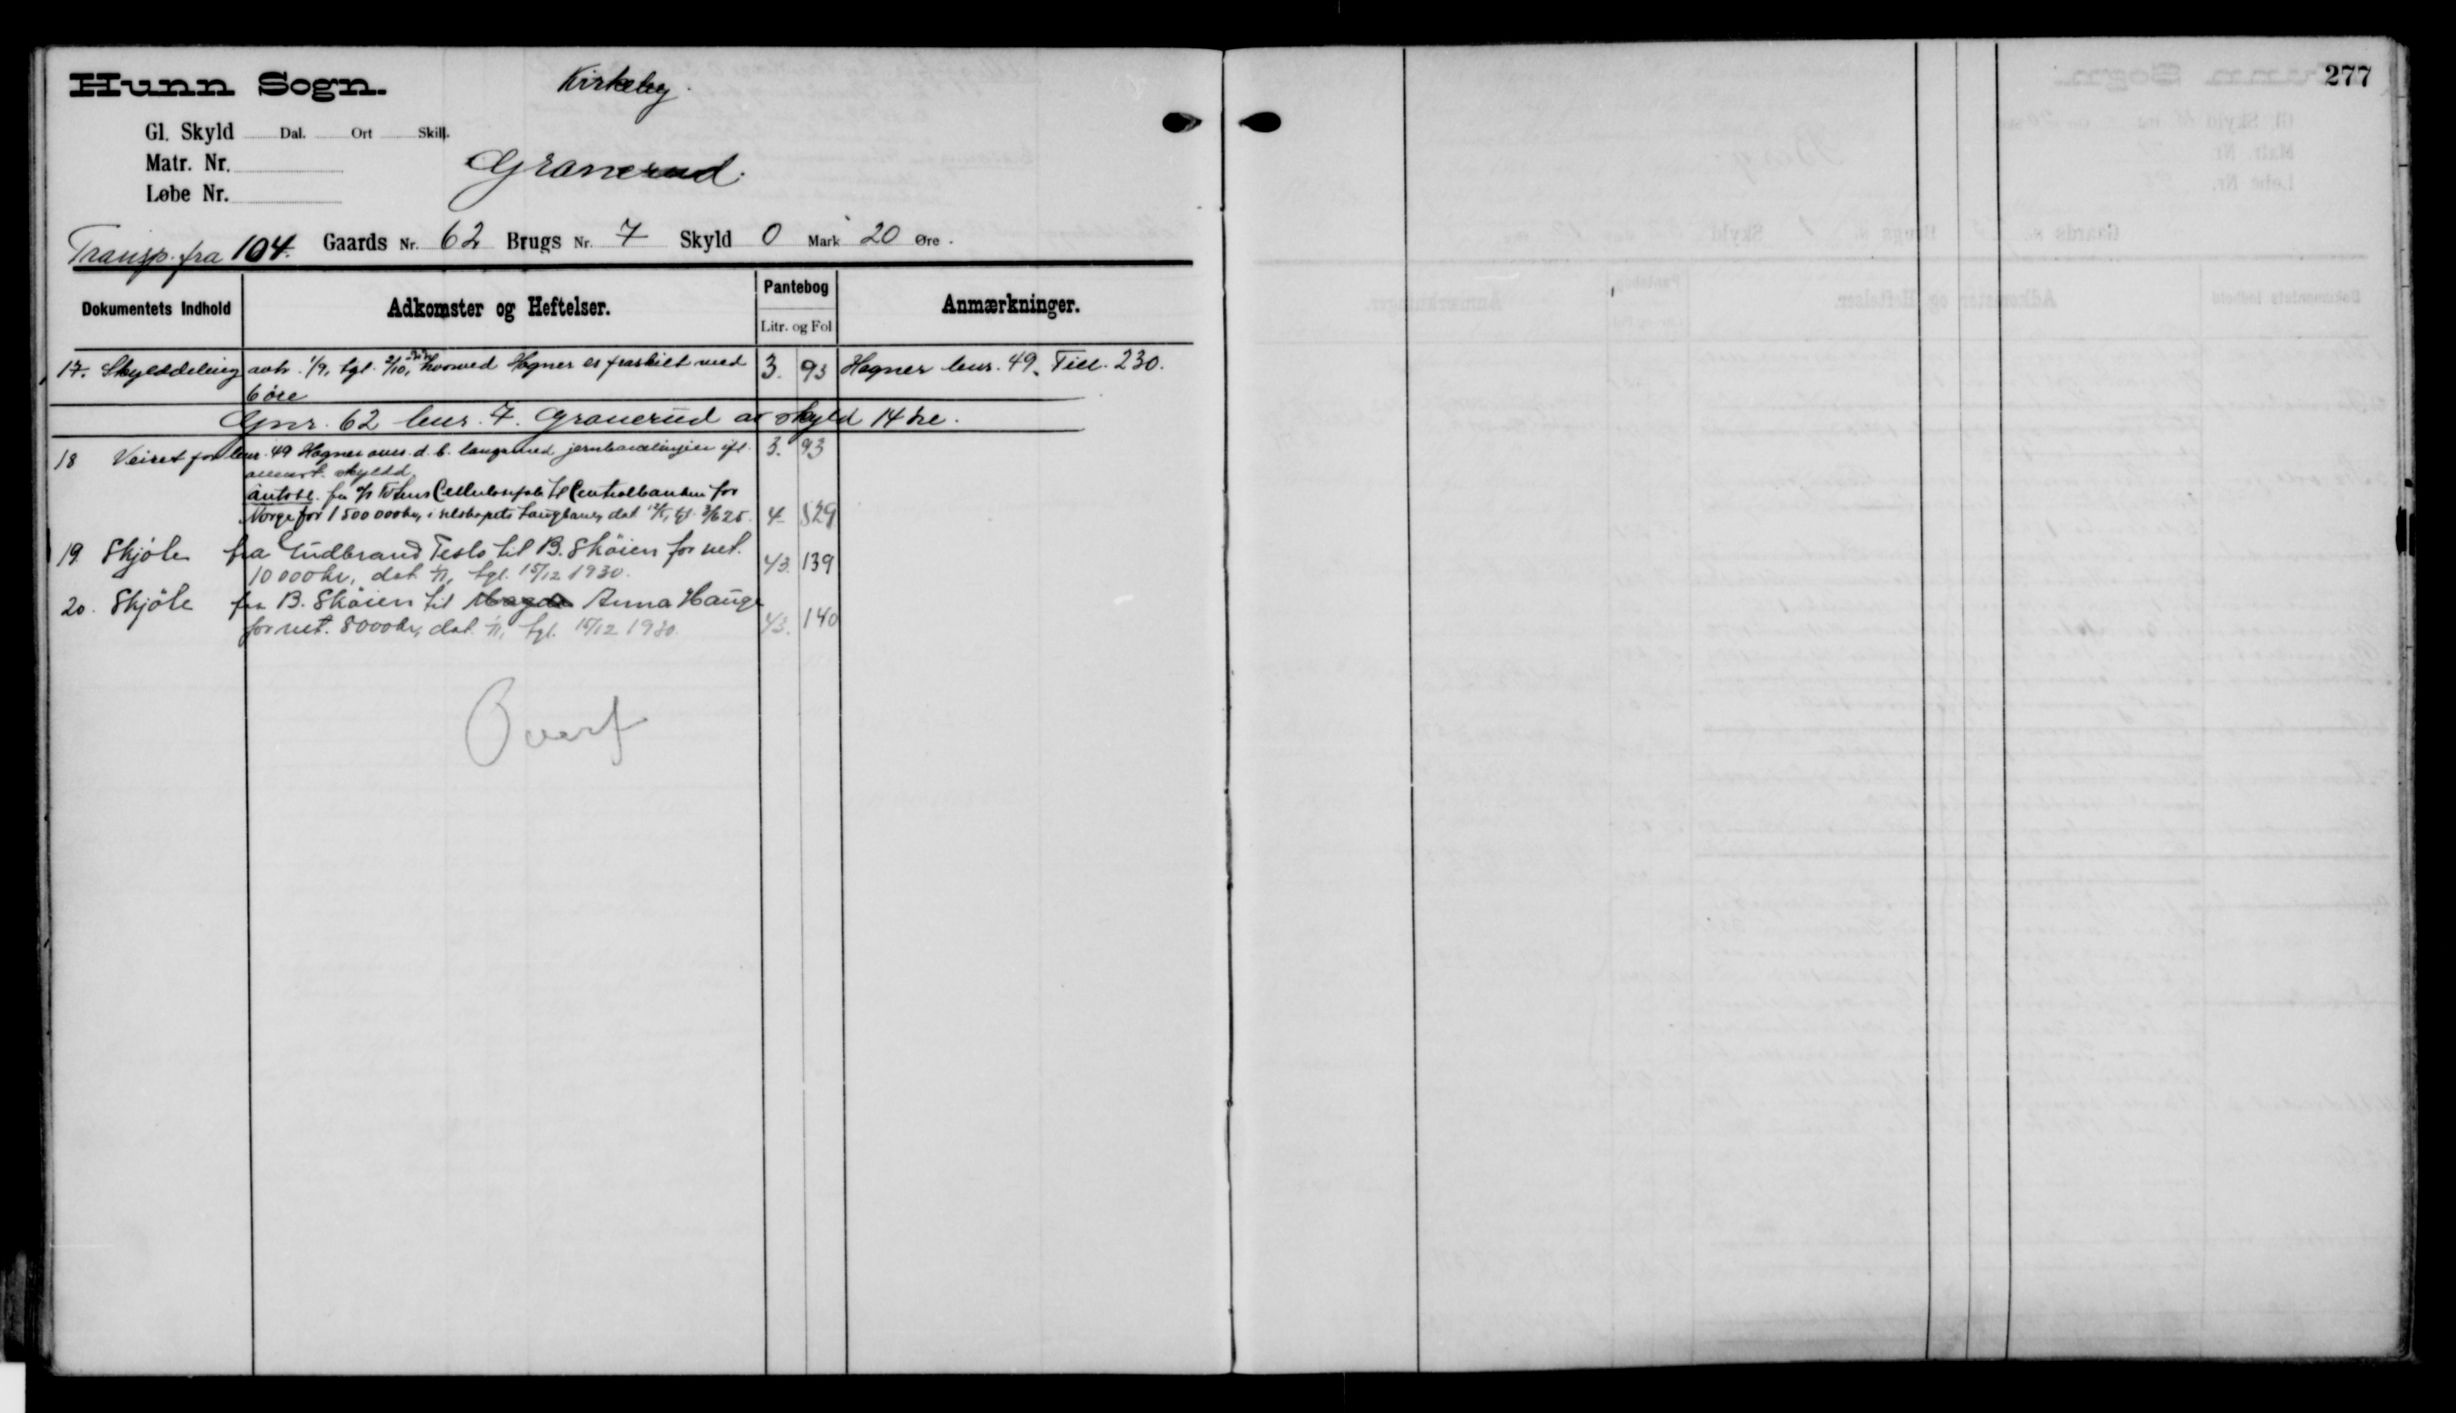 Hunn Sogn.
Kirkeby.
277
Gl. Skyld Dal. Ort Skill.
Matr. Nr.
Granerud.
Løbe Nr.
Transp. fra 104. Gaards Nr. 62 Brugs Nr. 7 Skyld 0 Mark 20 Øre.
Dokumentets Indhold Adkomster og Heftelser. Pantebog Anmærkninger.
Litr. og Fol
17. Skylddeling avh. 1/9, tgl. 2/10, hvorved Hagner er fraskilt med 3. 93 Hagner bnr. 49. Till. 230.
6 øre
Gnr. 62 bnr. 7. Granerud av skyld 14 øre.
18 Veiret for bnr. 49 Hagner over d. b. langsmed jernbanelinjen ifl. 3. 93
skyldd.
fra Cellulosefab. til Centralbanken for
Norge for 1500 000 kr, i selskapets dat 3/6 25. 4 529
19. Skjöte fra Gudbrand Teslo til B. Sköien for vet.
10 000 kr, dat. tgl. 15/12 1930. 43. 139
20. Skjöte fra B. Sköien til Magda Anna Hauge
for vet. 8000 kr, dat. tgl. 15/12 1930. 43. 140
Overf